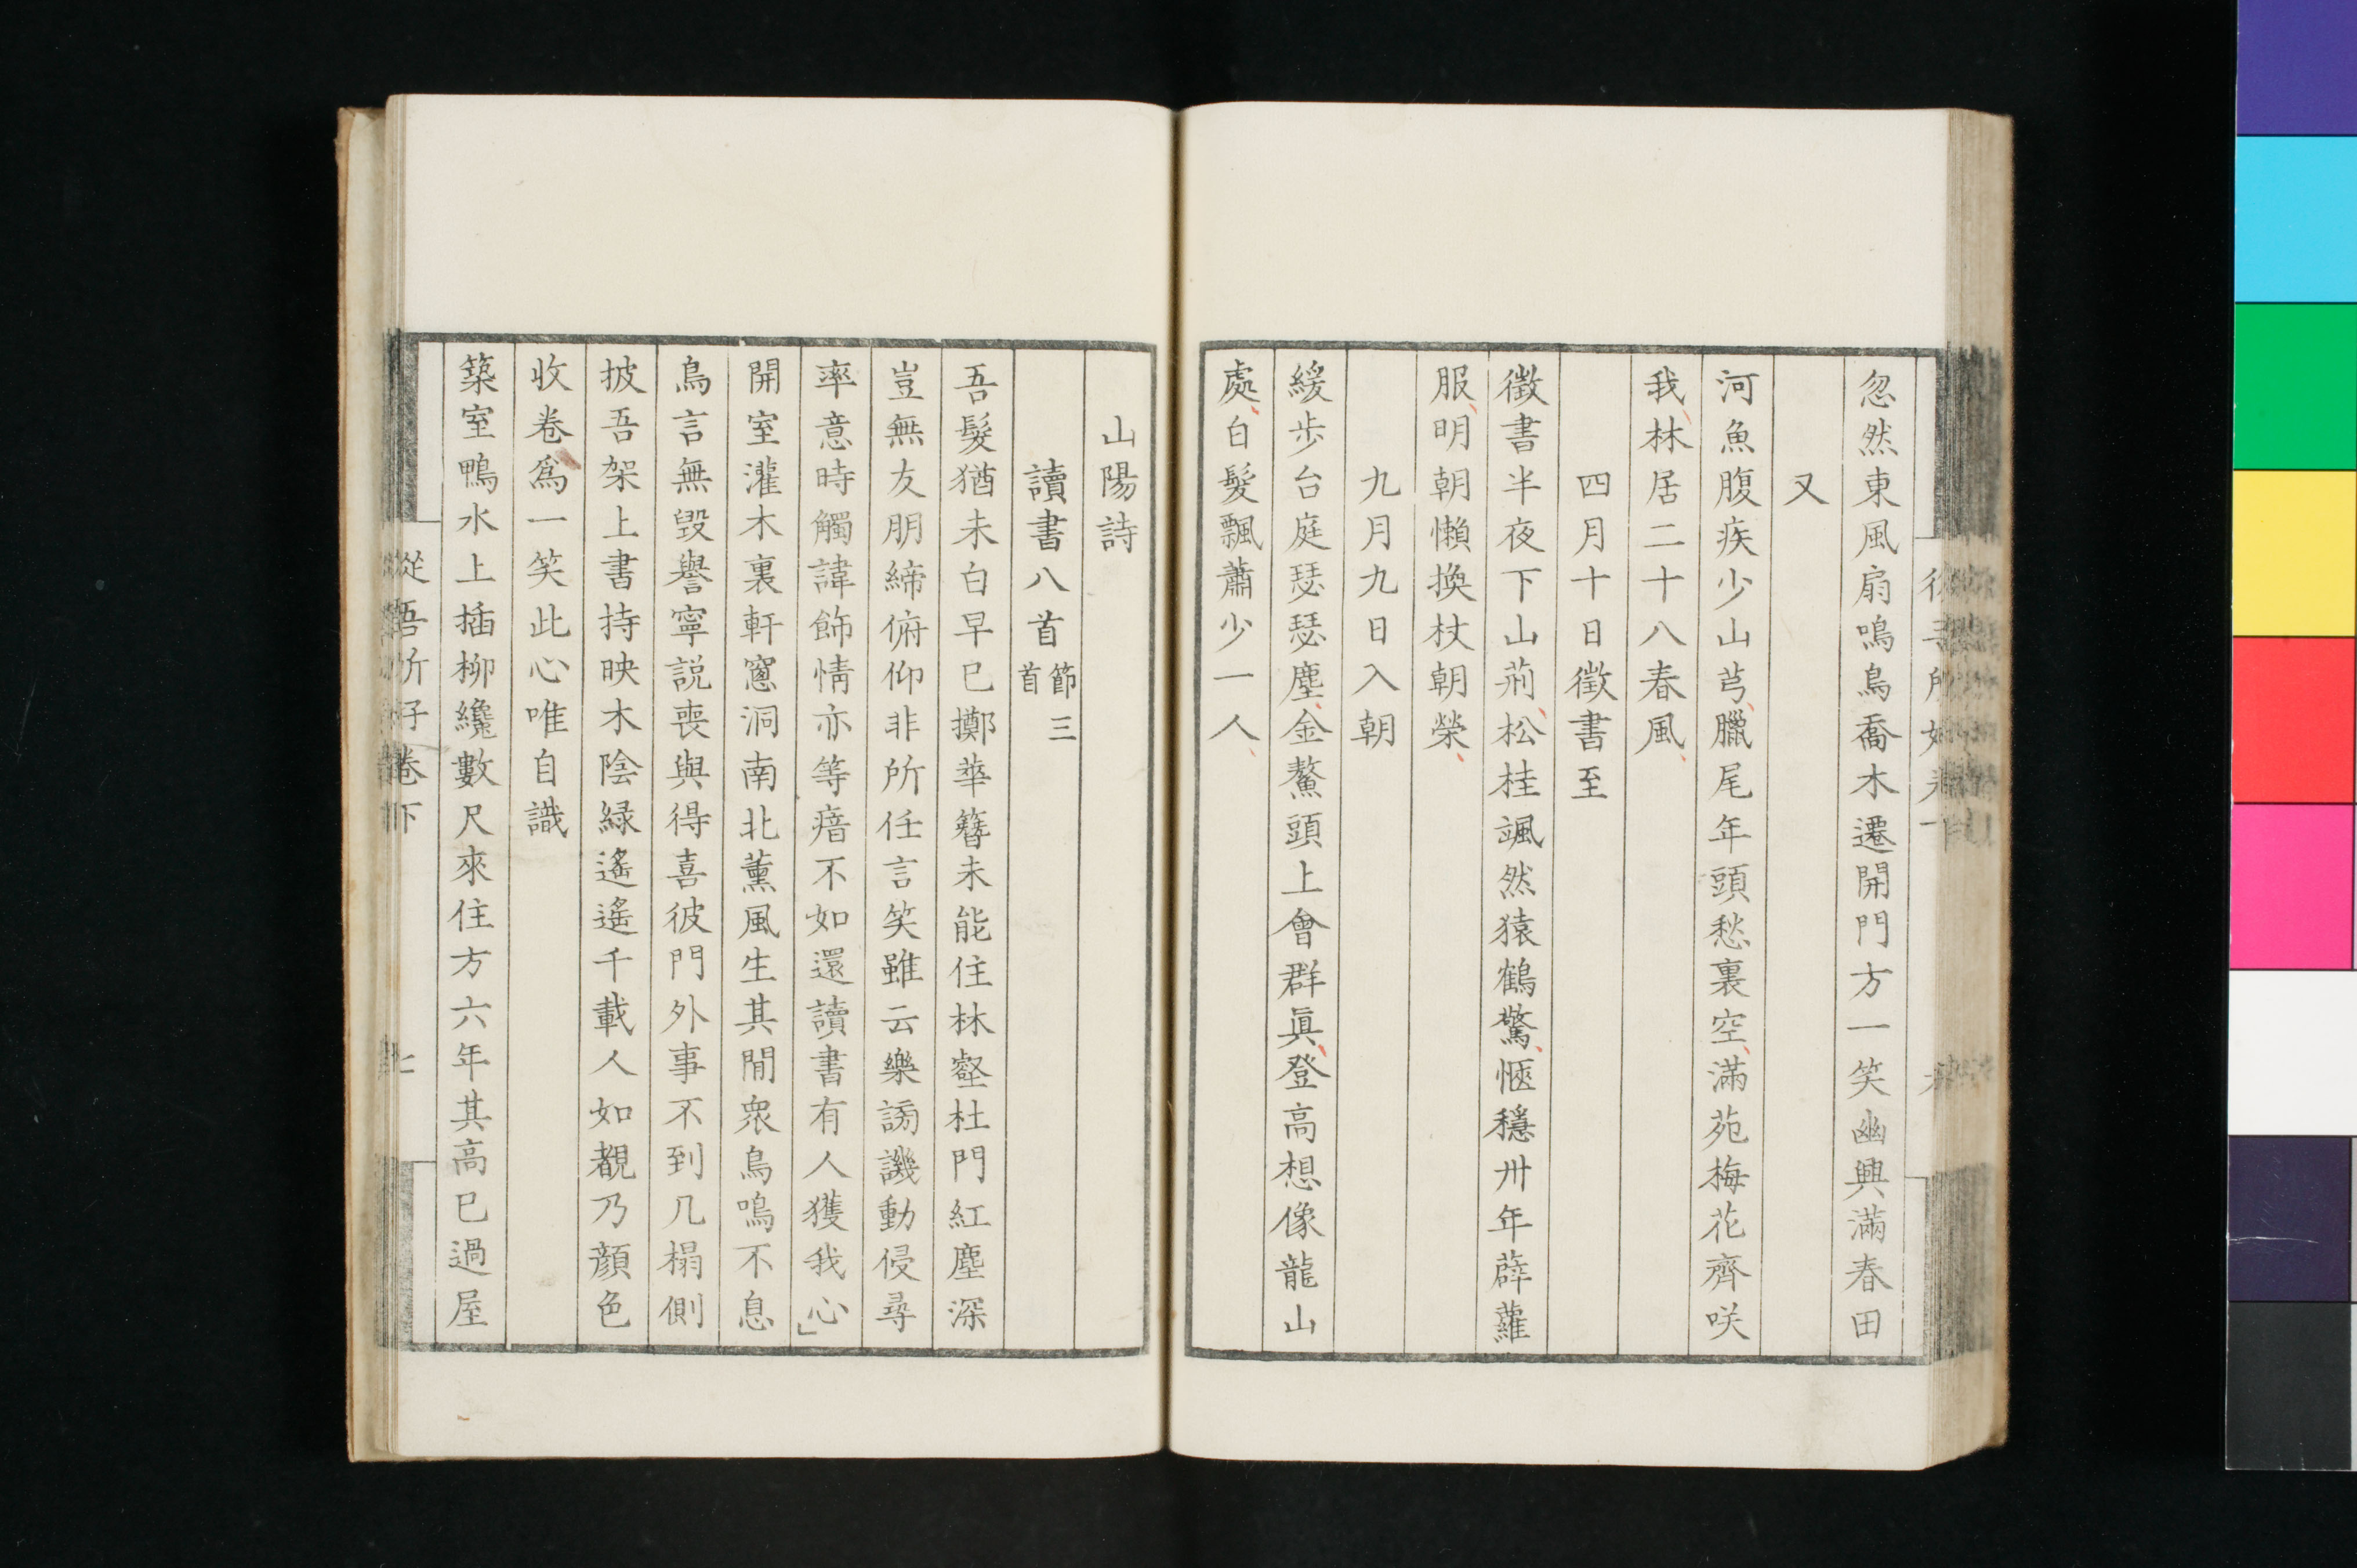 忽然東風扇鳴鳥喬木遷開門方一笑幽興滿春田
又
河魚腹疾少山芎臘尾年頭愁裏空滿苑梅花齊咲
我林居二十八春風
四月十日徵書至
徵書半夜下山荊松桂颯然猿鶴驚愜穩卅年薜蘿
服明朝懶換杖朝榮
九月九日入朝
緩歩台庭瑟瑟塵金鰲頭上會群眞登高想像龍山
處白髮飄蕭少一人
山陽詩
讀書八首節三首
吾髮猶未白早已擲華簪未能住林壑杜門紅塵深
豈無友朋締俯仰非所任言笑雖云樂謗譏動侵尋
率意時觸諱飾情亦等瘖不如還讀書有人獲我心」
開室灌木裏軒窻洞南北薰風生其間衆鳥鳴不息
鳥言無毀譽寧説喪與得喜彼門外事不到几榻側
披吾架上書持映木陰緑遙遙千載人如覩乃顔色
收卷爲一笑此心唯自識
築室鴨水上插柳纔數尺來住方六年其高已過屋
從吾所好卷下